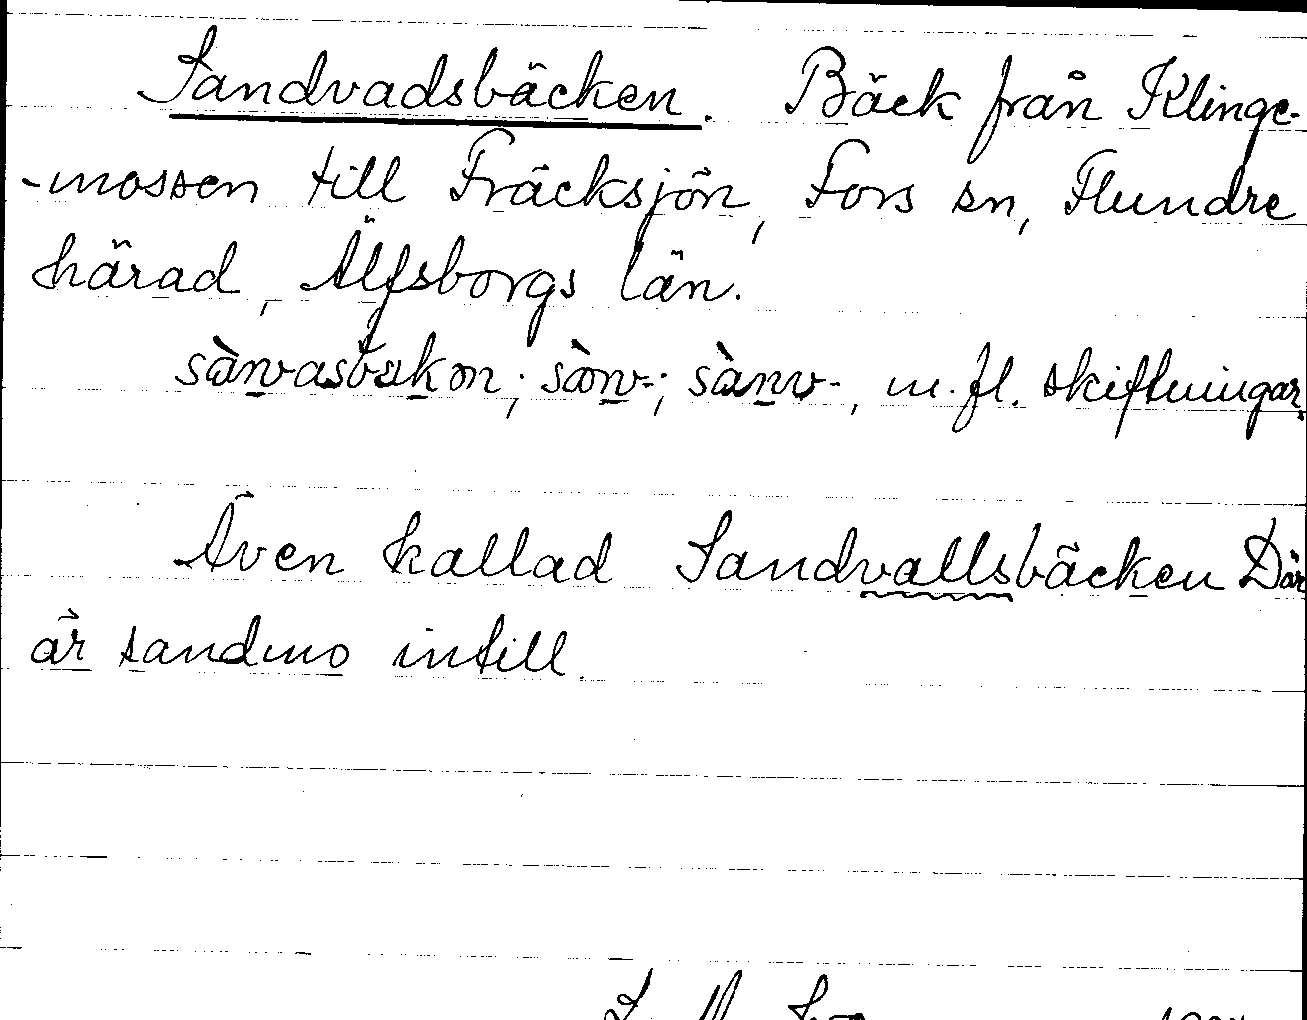 Sandvadsbäcken. Bäck från Klinge-
-mossen till Fräcksjön, Fors sn, Flundre
härad, Älfsborgs län.
sànvasbækən; sànv-; sànv-, m. fl. skiftningar.
Även kallad Sandvallsbäcken Där
är sandmo intill.